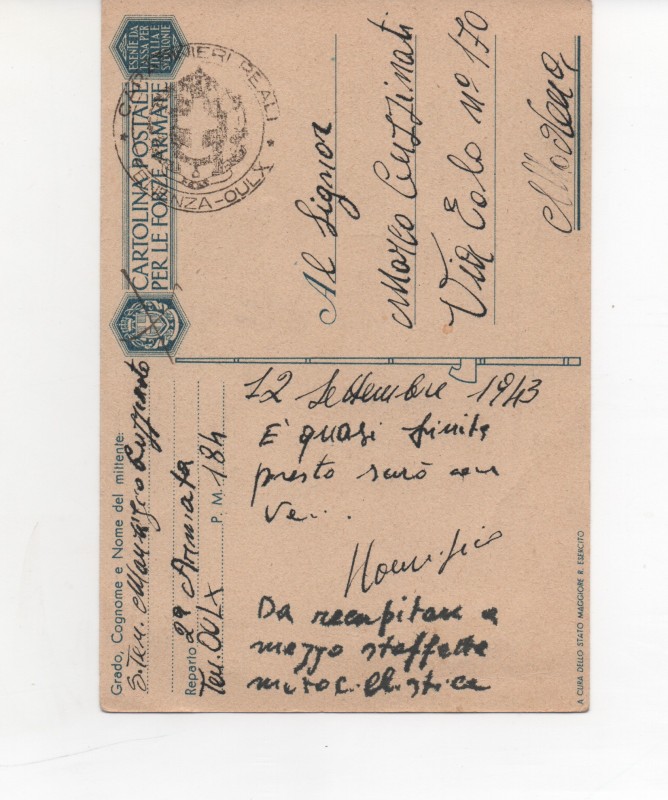 ESENTE DA
TASSA PER
L'ITALIA E
CARTOLINA POSTALE
PER LE FORZE ARMATE
CARABINIERI REALI
TENENZA-OULX
Al Signor
Marco
Via Eolo nº 170
Modena
Grado, Cognome e Nome del mittente:
S.Ten. Maurizio
Reparto 2ª Armata
Ten. OULX P. M. 184
12 Settembre 1943
È quasi finita
presto sarò con
Vo...
Maurizio
Da recapitare a
mezzo staffetta
motociclistica
A CURA DELLO STATO MAGGIORE R. ESERCITO